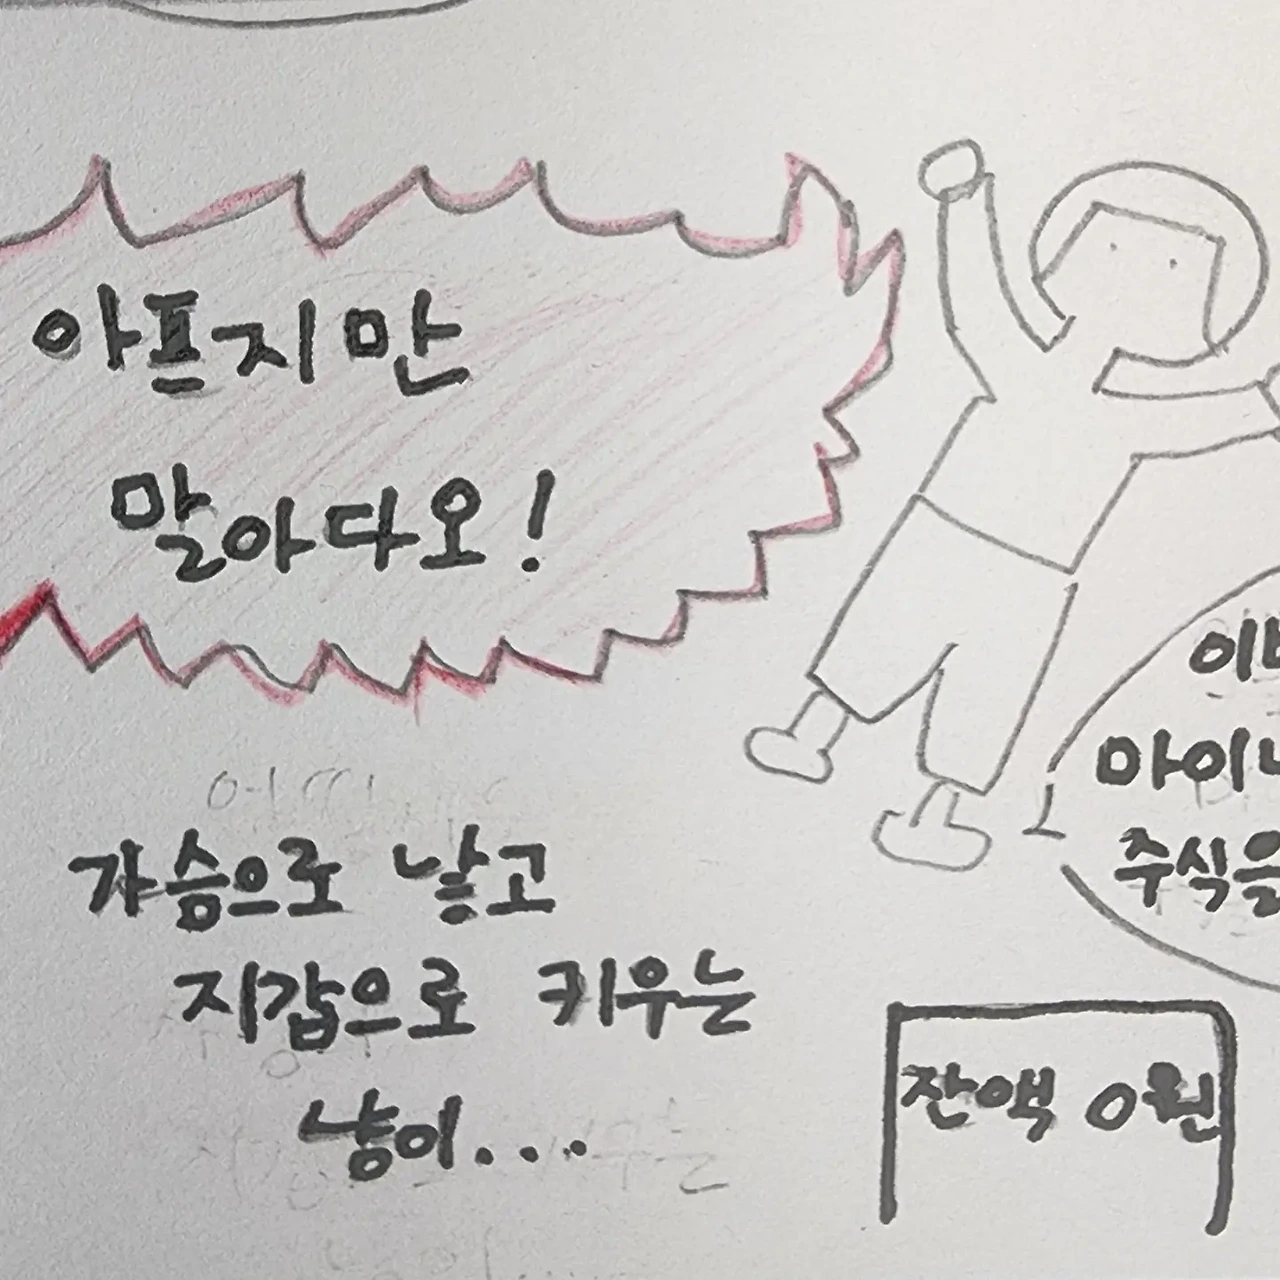 아프지만
말아다오!
가슴으로 낳고
지갑으로 키우는
냥이...
주식을
잔액 0원